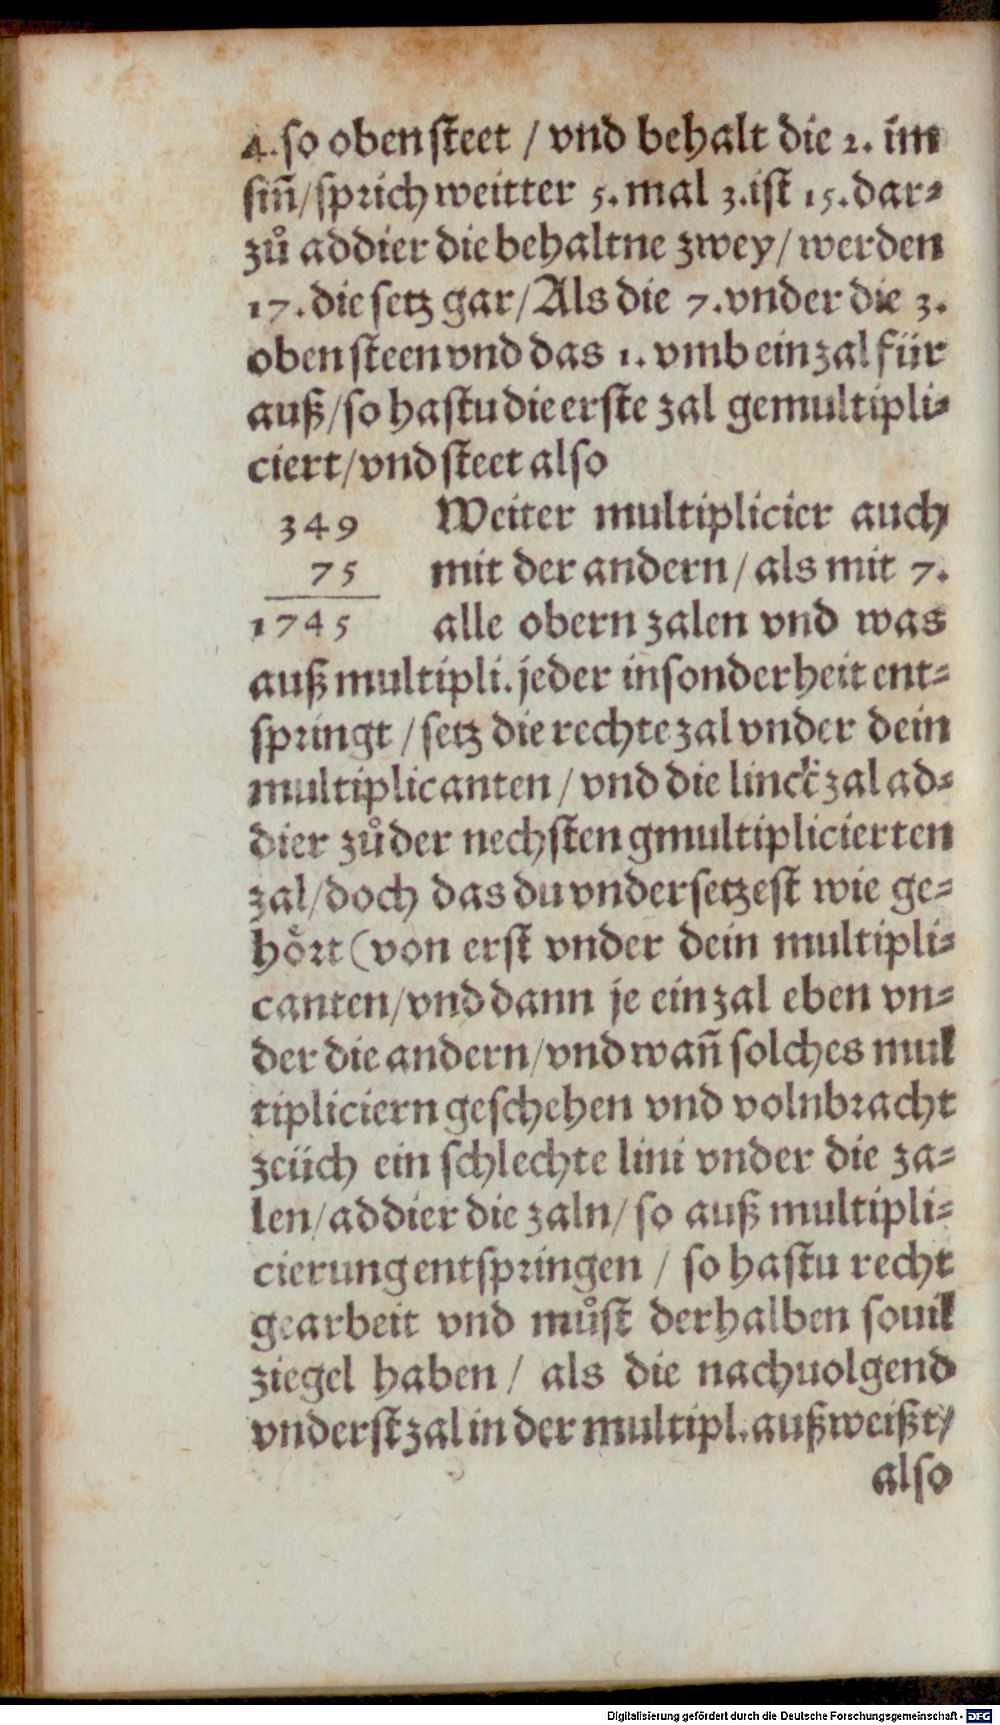 4. so oben steet / vnd behalt die 2. im
siñ / sprich weitter 5. mal 3. ist 15. dar⸗
zů addier die behaltne zwey / werden
17. die setz gar / Als die 7. vnder die 3.
oben steen vnd das 1. vmb ein zal für
auß / so hastu die erste zal gemultipli⸗
ciert / vnd steet also
349
75
1745
Weiter multiplicier auch
mit der andern / als mit 7.
alle obern zalen vnd was
auß multipli. jeder insonderheit ent⸗
springt / setz die rechte zal vnder dein
multiplicanten / vnd die linck̃ zal ad⸗
dier zů der nechsten gmultiplicierten
zal / doch das du vndersetzest wie ge⸗
hoͤrt (von erst vnder dein multipli⸗
canten / vnd dann je ein zal eben vn⸗
der die andern / vnd wañ solches mul
tipliciern geschehen vnd volnbracht
zeüch ein schlechte lini vnder die za⸗
len / addier die zaln / so auß multipli⸗
cierung entspringen / so hastu recht
gearbeit vnd můst derhalben souil
ziegel haben / als die nachuolgend
vnderst zal in der multipl. außweißt /
also
Digitalisierung gefördert durch die Deutsche Forschungsgemeinschaft - DFG